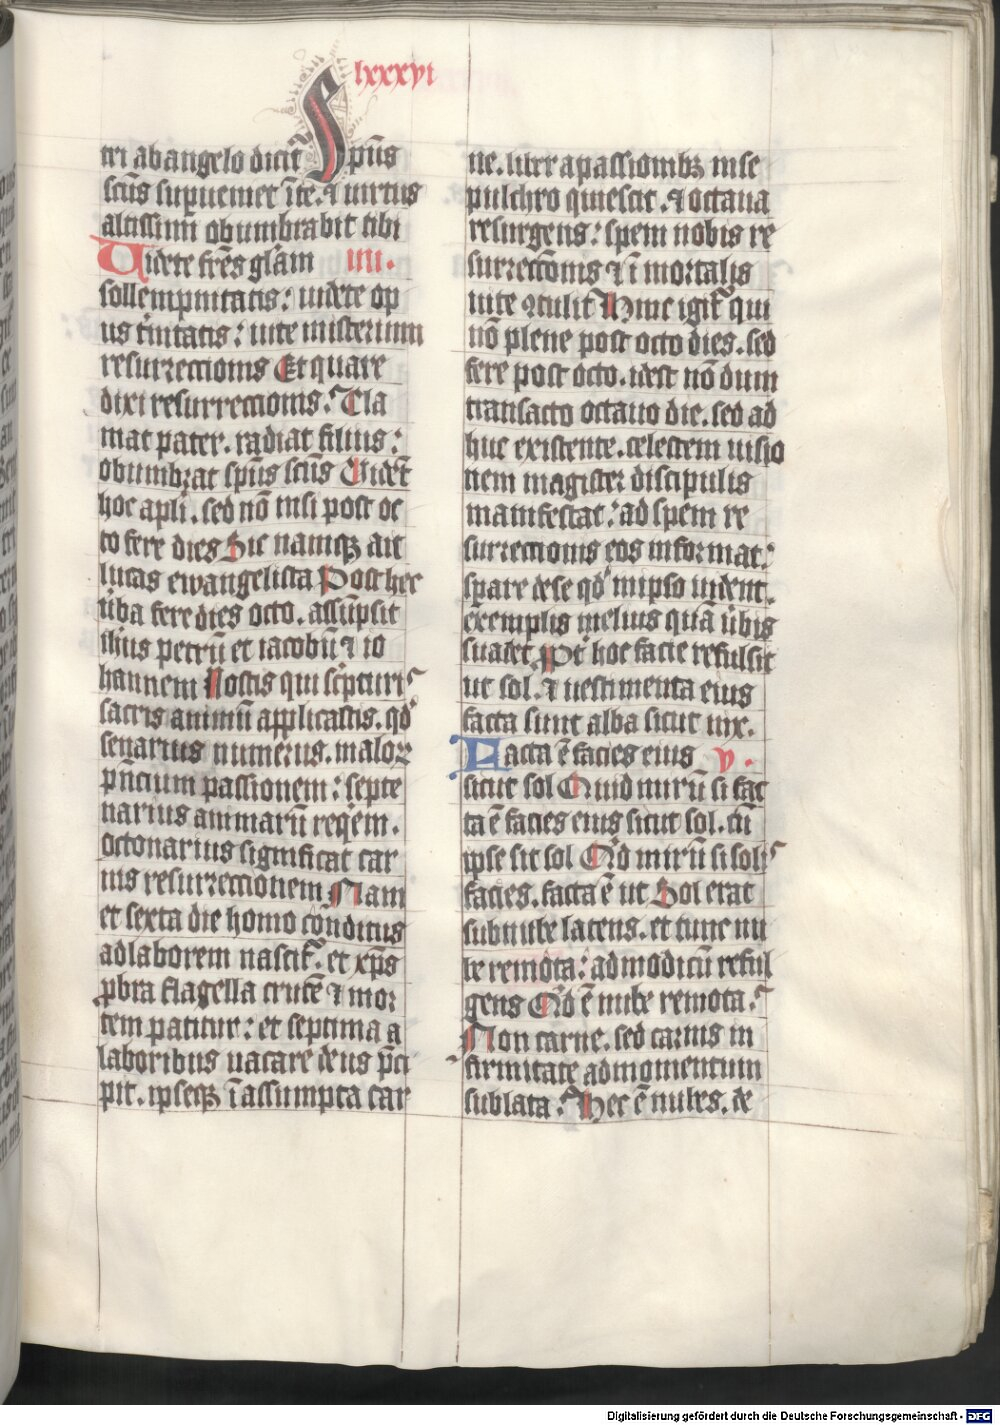 lxxxvi
tri ab angelo dicit᷑ Sp̄us
sc̄us supueniet ī te. ⁊ uirtus
altissimi obumbrabit tibi
Uidete fr̄es glāꝫ iiii.
sollempnitatis: uidete op
us t̄nitatis: uite misterium
resurrectionis Et quare
dixi resurrectionis. Cla
mat pater. radiat filius:
obumbrat sp̄us sc̄us Uidēt
hoc apl̄i. sed nō nisi post oc
to fere dies Sic namqꝫ ait
lucas ewangelista Post hec
ūba fere dies octo. assūpsit
ihūs petrū et iacobū ⁊ io
hannem Nostis qui sc̄pturis
sacris animū applicastis. qd̓
senarius numerus. maloꝝ
p̄ncium passionem: septe
narius animarū reqiem.
octonarius significat car
nis resurrectionem Nam
et sexta die homo cōnditus
ad laborem nascit᷑. et xp̄s
ꝓbra flagella crucē ⁊ mor
tem patitur: et septima a
laboribus uacare deus p̄ci
pit. ipseqꝫ ī assumpta car
ne. liber a passionibꝫ in se
pulchro quiescit. ⁊ octaua
resurgens: spem nobis re
surrectōnis ⁊ ī mortalis
uite ↄtulit Hinc igit᷑ qui
nō plene post octo dies. sed
fere post octo. idest nō dum
transacto octauo die. sed ad
huc existente. celestem uisio
nem magister discipulis
manifestat: ad spem re
surrectionis eos informat:
spare de se qd̓ in ipso uident.
exemplis melius quā ūbis
suadet. Pt̓ hoc facie refulsit
ut sol. ⁊ uestimenta eius
facta sunt alba sicut nix.
Facta ē facies eius v.
sicut sol Quid mirū si fac
ta ē facies eius sicut sol. cū
ipse sit sol Qd̓ mirū si solis
facies. facta ē ut Sol erat
sub nube latens. et tunc nu
be remota: ad modicū reful
gens Qd̓ ē nube remota.
Non carne. sed carnis in
firmitate ad momentum
sublata. Hec ē nubes. de
Digitalisierung gefördert durch die Deutsche Forschungsgemeinschaft - DFG